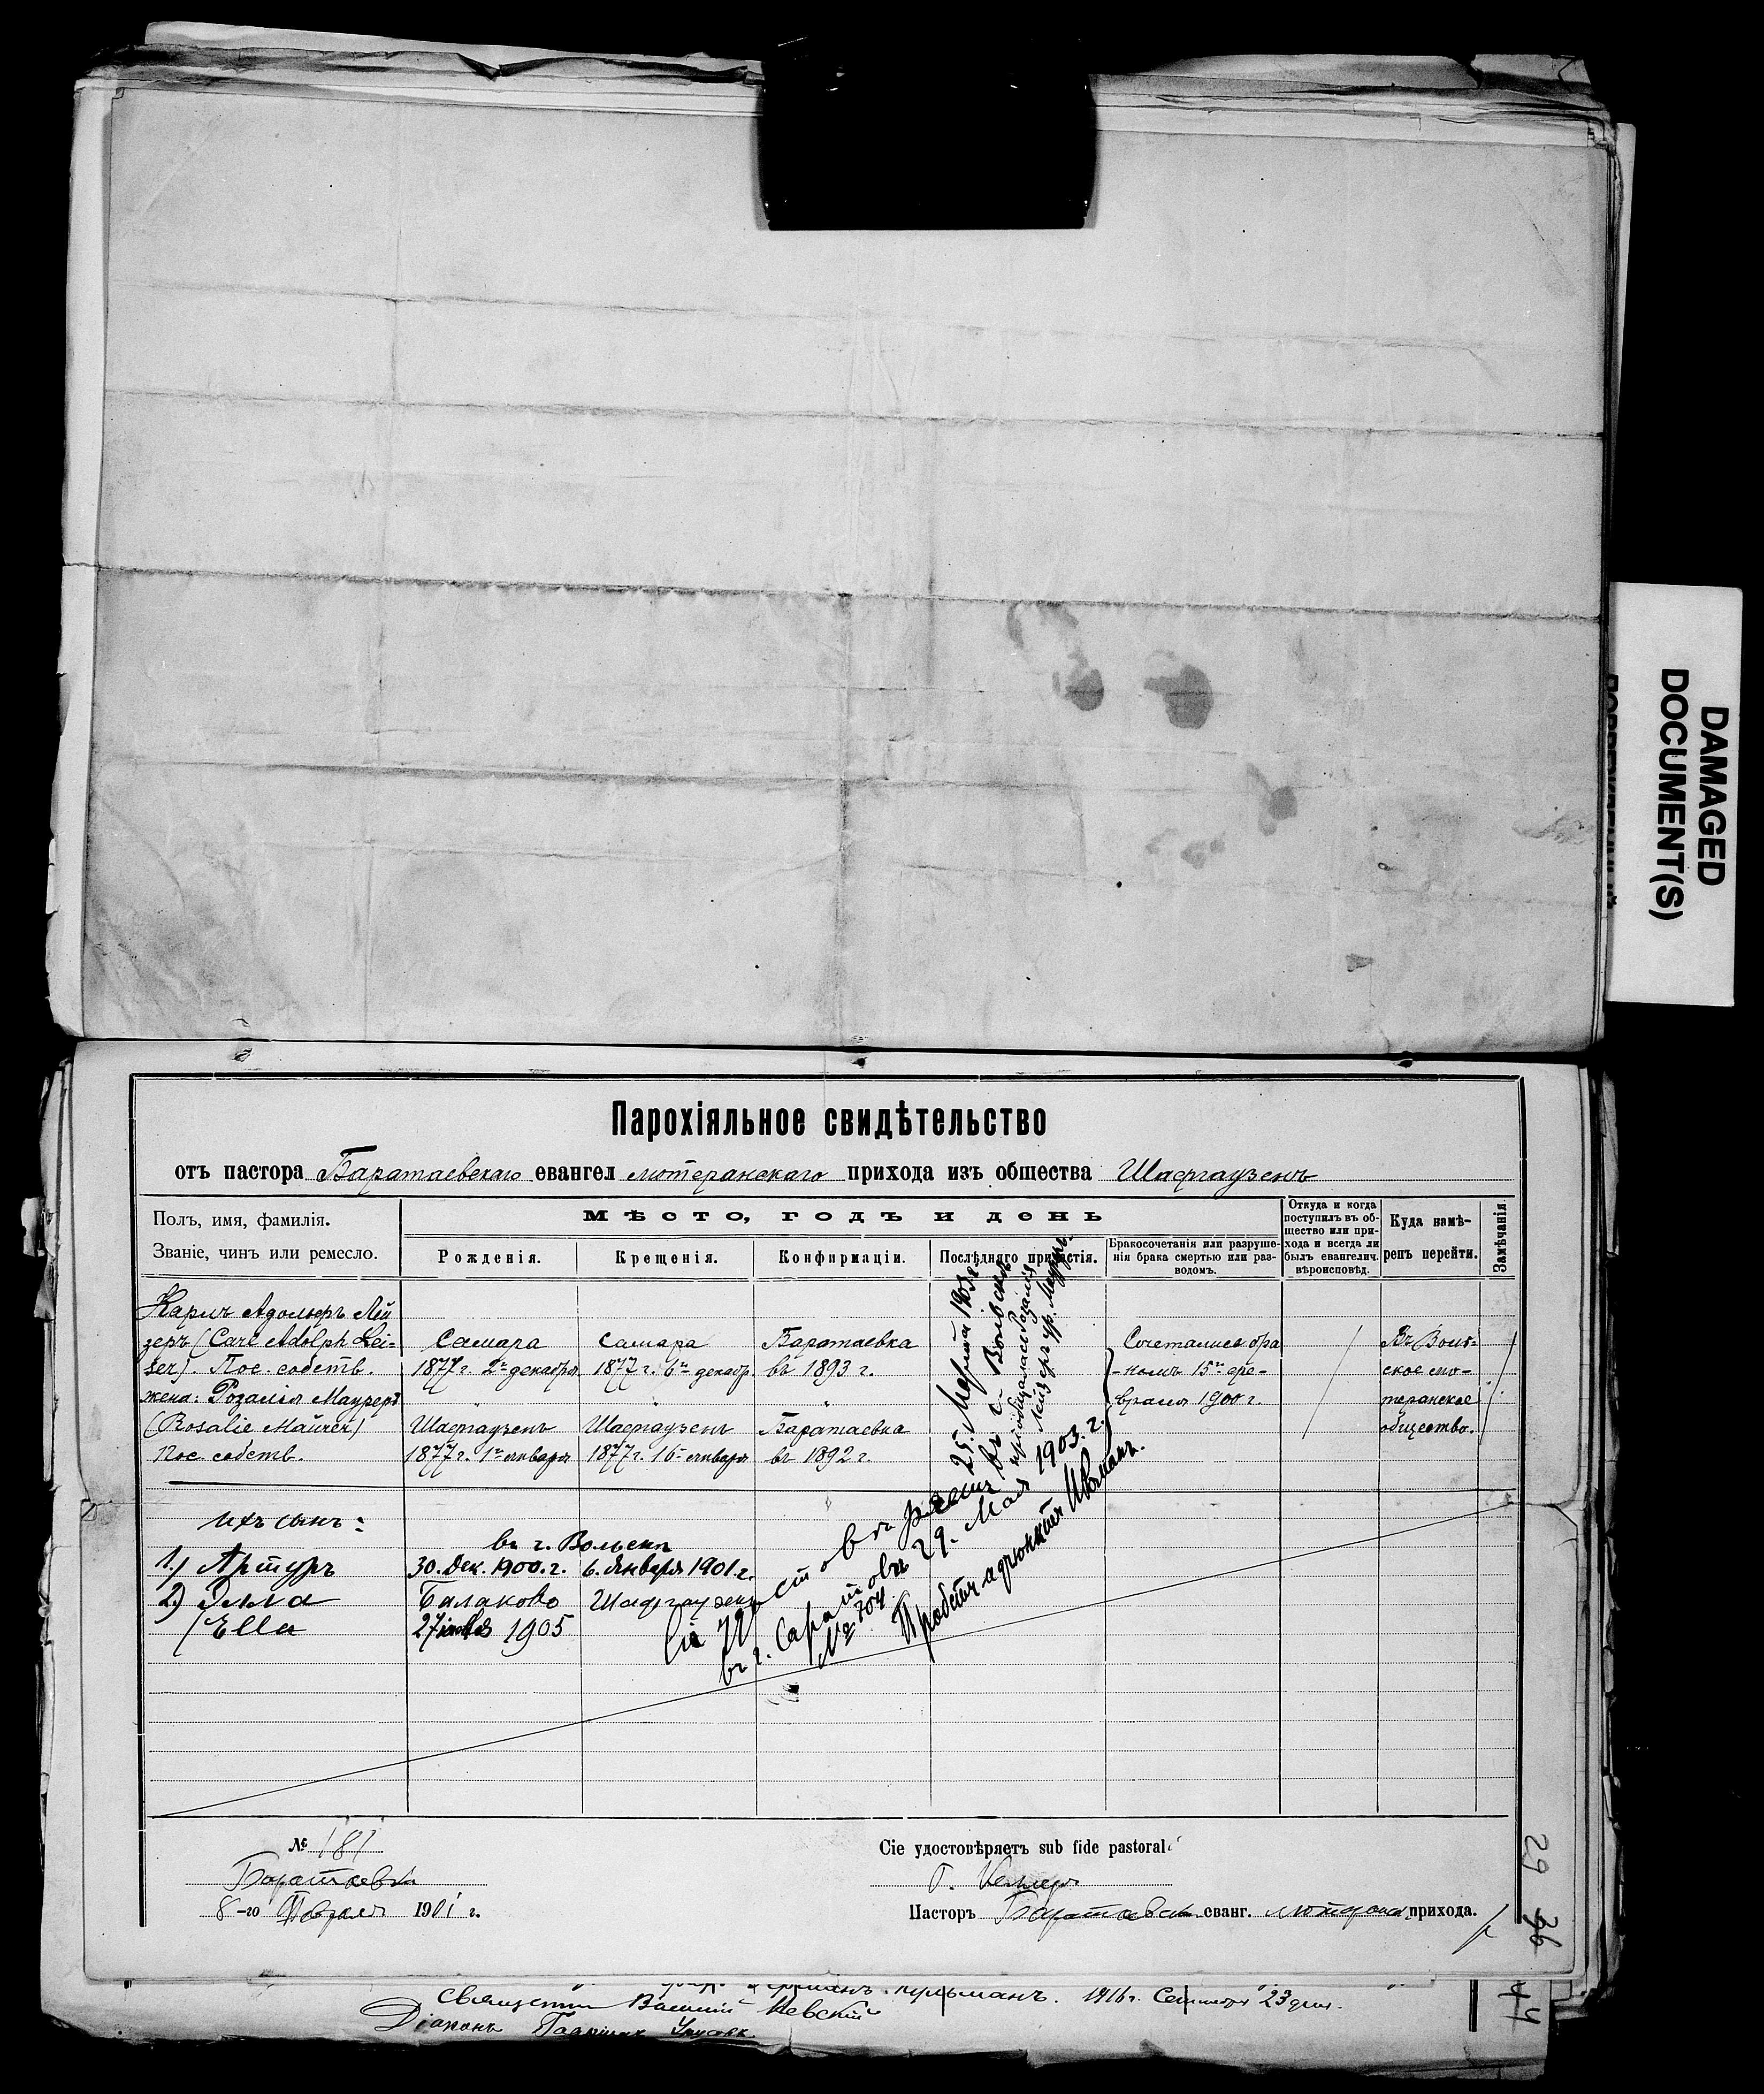 DAMAGED
DOCUMENT(S)
Парохіяльное свидѣтельство
отъ пастора Баратаевскаго евангел лютеранскаго прихода изъ общества Шафгаузенъ
Полъ, имя, фамилія.
Званіе, чинъ или ремесло.
Мѣсто, годъ и день
Рожденія.
Крещенія.
Конфирмаціи.
Послѣдняго причастія.
Бракосочетанія или разруше-
нія брака смертью или раз-
водомъ.
Откуда и когда
поступилъ въ об-
щество или при-
хода и всегда ли
былъ евангелич.
вѣроисповѣд.
Куда намѣ-
ренъ перейти.
Замѣчанія.
Карлъ Адольфъ Лей
зеръ (Carl Adolph Lei-
ser). Пос. собств.
жена: Розалія Мауреръ
(Rosalie Maurer)
Пос. собств.
Самара
1877 г. 2го декабря
Шафгаузенъ
1877 г. 1го января
Самара
1877 г. 6го декабр.
Шафгаузенъ
1877 г. 16го января
Баратаевка
въ 1893 г.
Баратаевка
въ 1892 г.
25. Марта 1903 г.
въ г. Вольскѣ
пріобщалась Розалія
Лейзеръ ур. Мауреръ
Сочетались бра
-комъ 15го фе-
враля 1900 г.
Въ Воль-
ское лю-
теранское
общество.
ихъ сынъ:
1.) Артуръ
2.) Элла
(Ella
въ г. Вольскѣ
30. Дек. 1900. г.
6. Января 1901. г.
Балаково
Шафгаузенъ
27 1905
Сіе удостовѣряетъ
въ г. Саратовѣ 29. Мая 1903. г.
№ 704. Пробстъ адъюнктъ
№ 181
Баратаевка
8-го Февраля 1901 г.
Сіе удостовѣряетъ sub fide pastorali
Г. Келлеръ
Пасторъ Баратаевск еванг. лютеран. прихода.
29
36
1916 г. Сентября 23 дня.
Священникъ Василій Невскій
Діаконъ